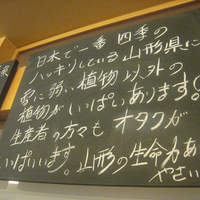 日本で一番 四季の
ハッキリしている山形県に
雪に弱い植物以外の
植物がいっぱいあります。
生産者の方々も オタクが
いっぱいます。山形の生命力あ
やさい